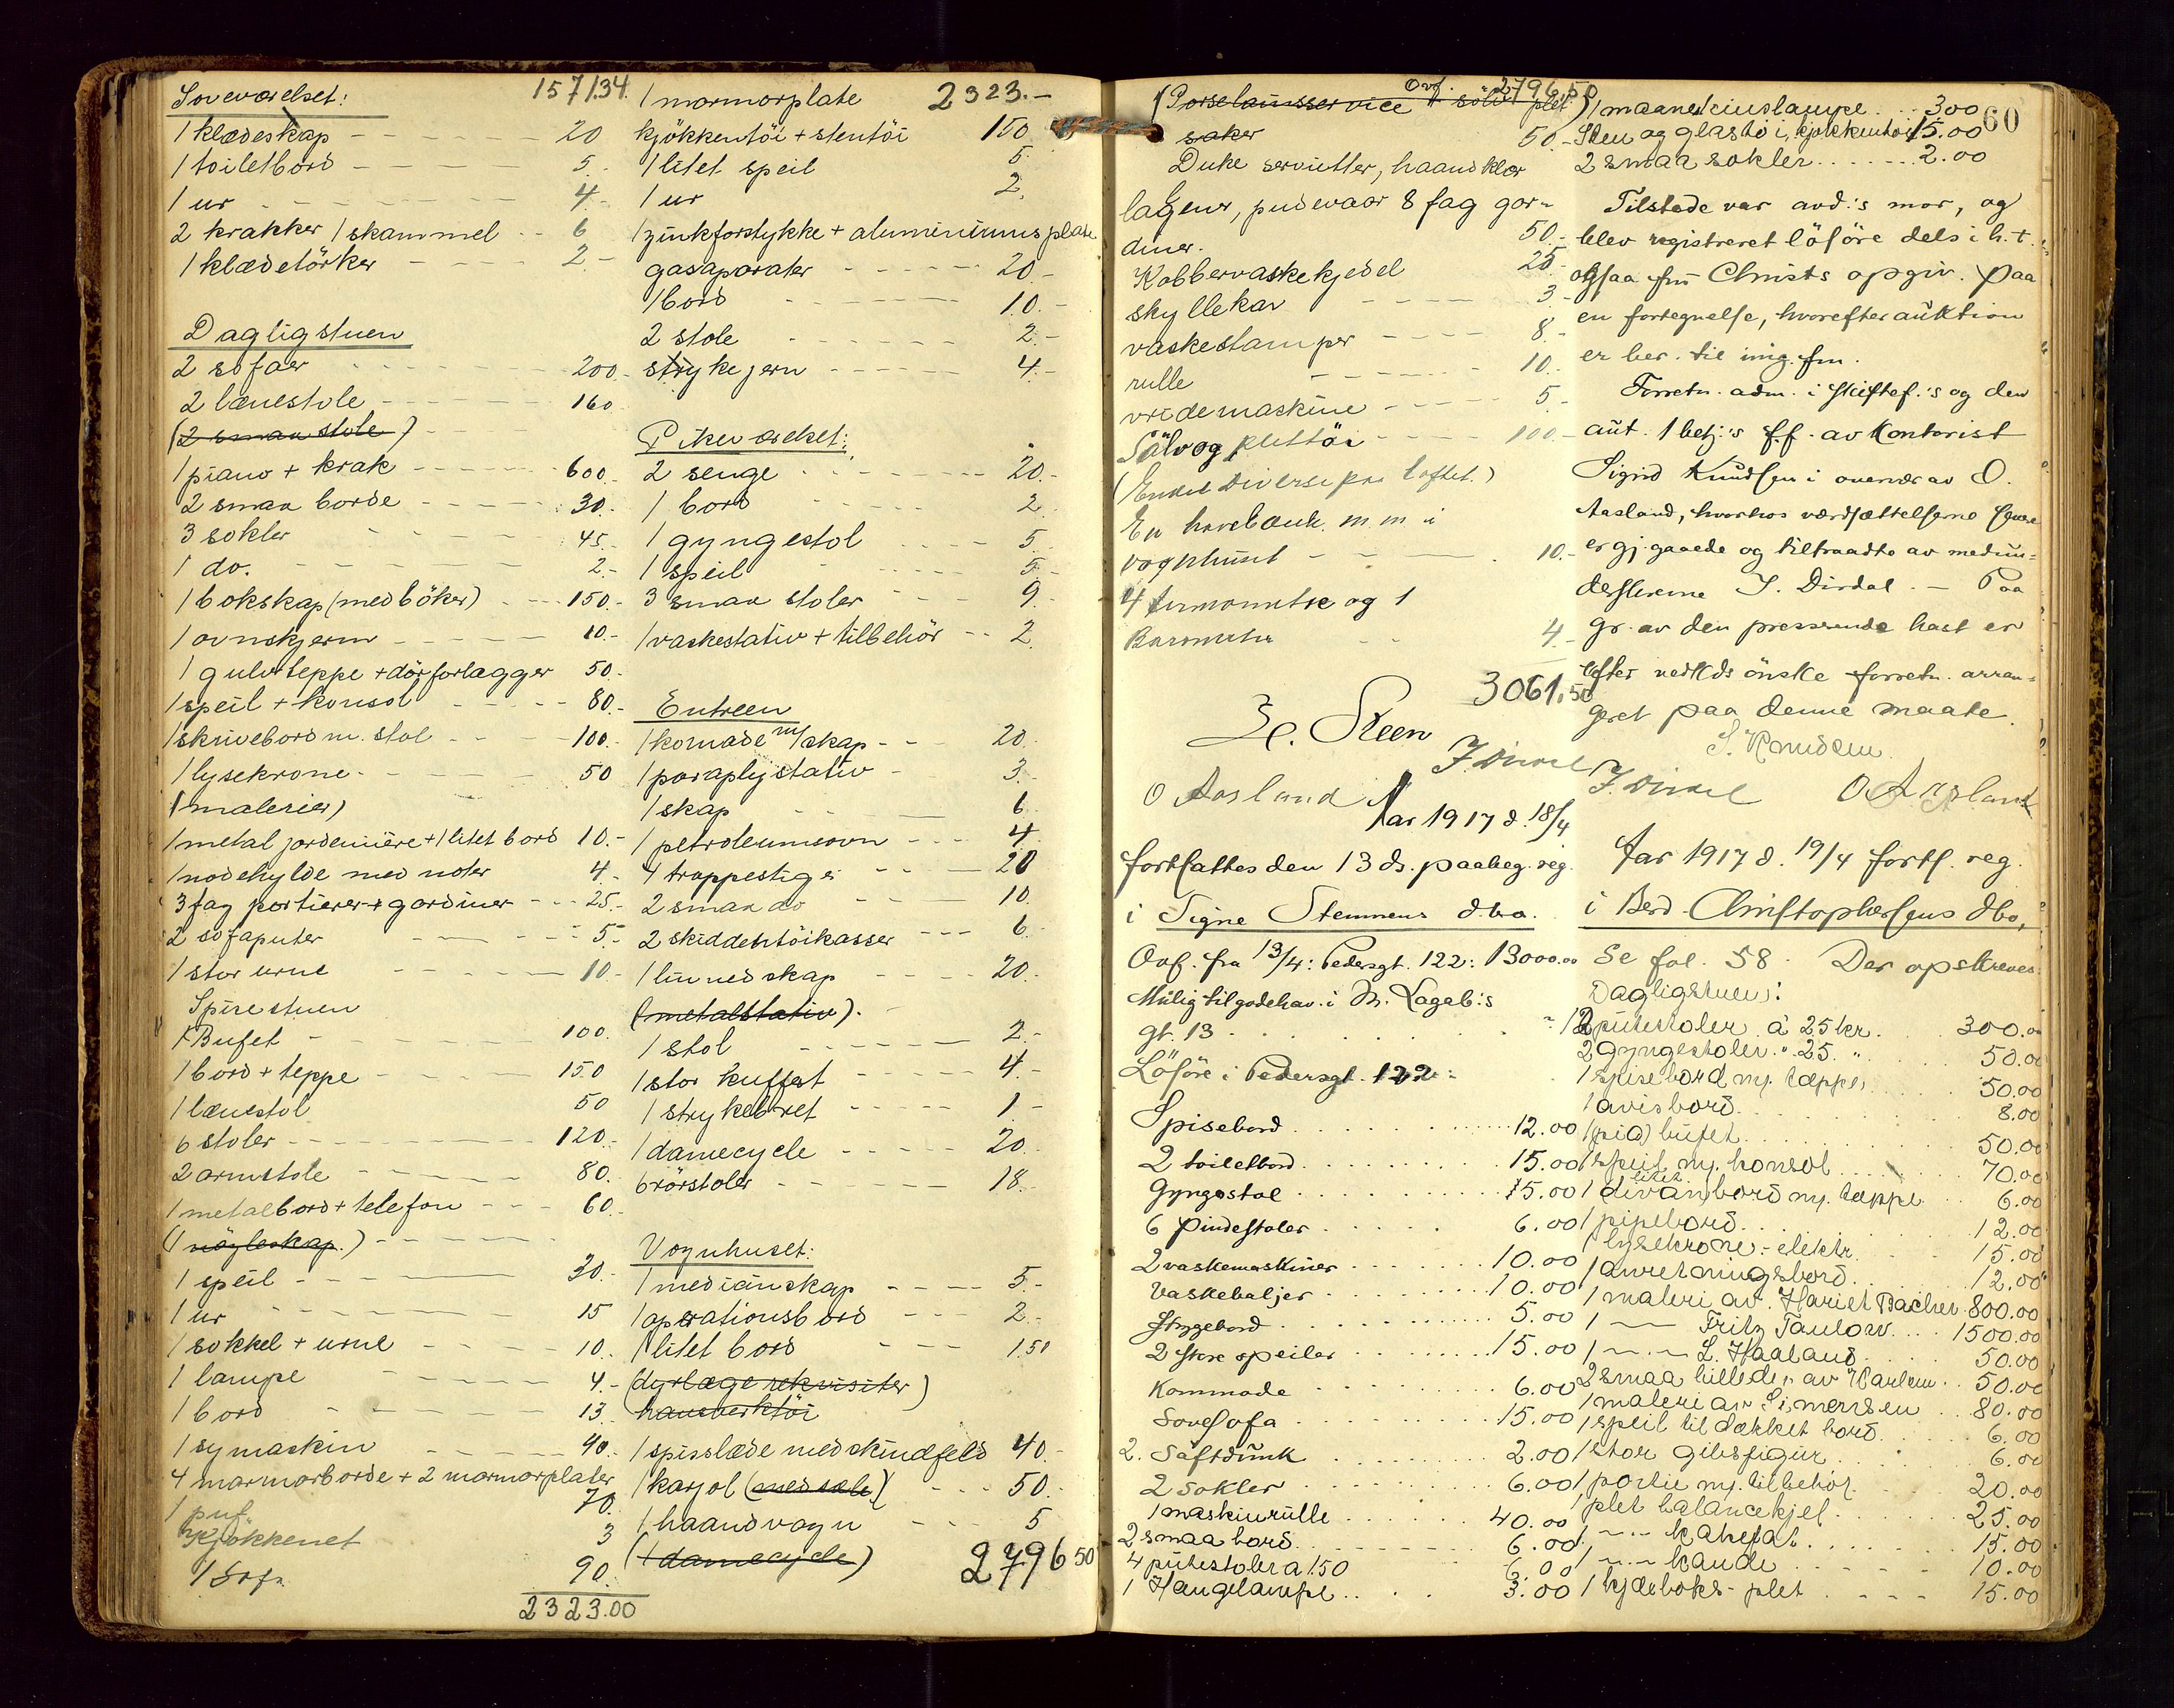 Soveværelset:
157/34.
1 klædeskap 20
1 toiletbord 5.-
1 ur 4.-
2 krakker 1 skammel 6
1 klædetörker 2.-
Dagligstuen
2 sofaer 200.-
2 lænestole 160
(2 smaa stole)
1 piano + krak 600.-
2 smaa borde 30.-
3 sokler 45.-
1 do. 2.-
1 bokskap (med böker) 150.-
1 ovnskjerm 10.-
1 gulvteppe + dörforlægger 50.-
1 speil + konsol 80.-
1 skrivebord m. stol 100.-
1 lysekrone 50
(malerier)
1 metal jardeniére + 1 litet bord 10.-
1 nodehylde med noter 4.-
3 fag portierer + gardiner 25.-
2 sofaputer 5.-
1 stor urne 10.-
Spisestuen
1 Bufet 100.
1 bord + teppe 150
1 lænestol 50
6 stoler 120.-
2 armstole 80.
1 metalbord + telefon 60.
(1 nögleskap.)
1 speil 30.-
1 ur 15
1 sokkel + urne 10.
1 lampe 4.-
1 bord 13
1 symaskin 40.-
4 marmorborde + 2 marmorplater 70.
1 puf. 3
Kjökkenet
1 Sofa 90.
2323.00
1 marmorplate 2323.-
kjökkentöi + stentöi 150.
1 litet speil 5.
1 ur 2.
1 zinkforstykke + aluminiums plate
gasaparater 20.-
1 bord 10.-
2 stole 2.-
strykejern 4.-
Pikeværelset:
2 senge 20.-
1 bord 2.
1 gyngestol 5.
1 speil 5.-
3 smaa stoler 9.
1 vaskestativ + tilbehör 2.
Entreen
1 komade m/skap 20.
1 paraplystativ 3.-
1 skap 6.
1 petroleumsovn 4.
4 trappestige 20
2 smaa do 10.
2 skiddentöikasser 6.
1 linnedskap 20.
(metalstativ).
1 stol 2.-
1 stor kuffert 4.-
1 strykebret 1.-
1 damecycle 20.
6 rörstoler 18.
Vognhuset:
1 medicinskap 5.-
1 operationsbord 2.-
1 litet bord 1.50
(dyrlæge rekvisiter)
haandverktöi
1 spisslæde med skindfeld 40.-
1 karjol (med sele) 50.-
1 haandvogn 5
(1 damecycle)
2796 50
Ovf. 2796,50
(Porselainsservice + sölv plet)
saker 50.-
Duke servietter, haandklær
lagener, pudevaar 8 fag gar-
diner. 50.-
Kobbervaskekjedel 25.-
skyllekar 3.-
vaskestamper 8.-
rulle 10.-
vridemaskine 5.-
Sölv og plettöi 100.-
(Endel diverse paa loftet.)
En havebænk m. m. i
vognhuset 10.-
4 termometre og 1
Barometer 4.-
3061,50
H. Steen
J. Dirdal
O Aasland
Aar 1917 d. 18/4
fortsattes den 13 ds. paabeg. reg.
i Signe Stemnens dbo.
Ovf. fra 13/4: Pedersgt. 122: 13000.00
Mulig tilgodehav. i N. Lageb:s
gt. 13
Lösöre i Pedersgt. 122:
Spisebord 12.00
2 toiletbord 15.00
Gyngestol 15.00
6 Pindestoler 6.00
2 vaskemaskiner 10.00
Vaskebaljer 10.00
Strygebord 5.00
2 store speiler 15.00
Kommode 6.00
Sovesofa 15.00
2 Saftdunk 2.00
2 Sokler 6.00
1 maskinrulle 40.00
2 smaa bord 6.00
4 putestoler a 1.50 6.00
1 Hængelampe 3.00
60
1 maaneskinslampe 3.00
Sten og glastöi, kjökkentöi 15.00
2 smaa sokler 2.00
Tilstede var avd:s mor, og
blev registreret lösöre dels i h. t.
ogsaa fru Christs opgiv. paa
en fortegnelse, hvorefter auktion
er ber. til img. frm.
Forretn. adm. i skiftef.:s og den
aut. 1 betj:s f.f. av Kontorist
Sigrid Knudsen i overvær av O.
Aasland, hvorhos værdsættelserne senere
er gj.gaaede og tiltraadte av medun-
derskrerne J. Dirdal. - Paa
gr. av den presserende hast er
efter vedkds önske forretn. arran-
geret paa denne maate.
S. Knudsen
J. Dirdal O Aasland
Aar 1917 d. 19/4 forts. reg.
i Berd. Christophersens dbo,
Se fol. 58. Der opskreves:
Dagligstuen:
12 putestoler à 25 kr. 300.00
2 gyngestoler " 25. " 50.00
1 spisebord m. tæppe 50.00
1 avisbord 8.00
1 (pia) bufet 50.00
1 speil m. konsol 70.00
1 litet divanbord m. tæppe 6.00
1 pipebord 12.00
1 lysekrone - elektr. 15.00
1 anretningsbord 12.00
1 maleri av Hariet Backer 800.00
1 -"- Fritz Taulow 1500.00
1 -"- L. Haaland 50.00
2 smaa billeder av Karlem 50.00
1 maleri av Simensen 80.00
1 speil til dækket bord 6.00
1 stor gibsfigur 6.00
1 portie m. tilbehör 20.00
1 plet balancekjel 25.00
1 -"- kakefat 15.00
1 -"- kande 10.00
1 kjæboks - plet 15.00